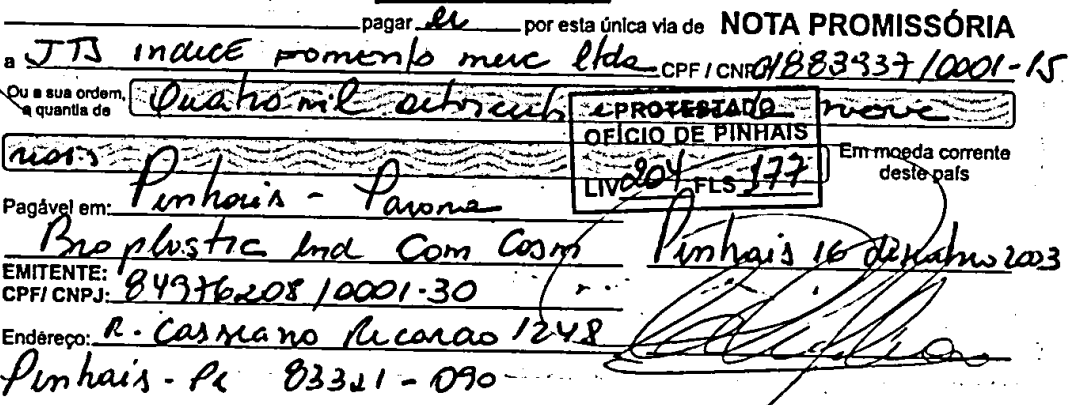 pagar eu por esta única via de NOTA PROMISSÓRIA
a JTB indice Fomento merc ltda CPF / CNPJ 01883937/0001-15
Ou a sua ordem, a quantia de Quatro mil oitocentos e nove
PROTESTADO
OFÍCIO DE PINHAIS
LIV 204 FLS 177
reais Em moeda corrente deste país
Pagável em: Pinhais - Parana
Bioplastic Ind Com Cosm Pinhais 16 dezembro 2003
EMITENTE:
CPF/ CNPJ: 84976208/0001-30
Endereço: R. Cassiano Ricardo 1248
Pinhais - Pr 83321-090